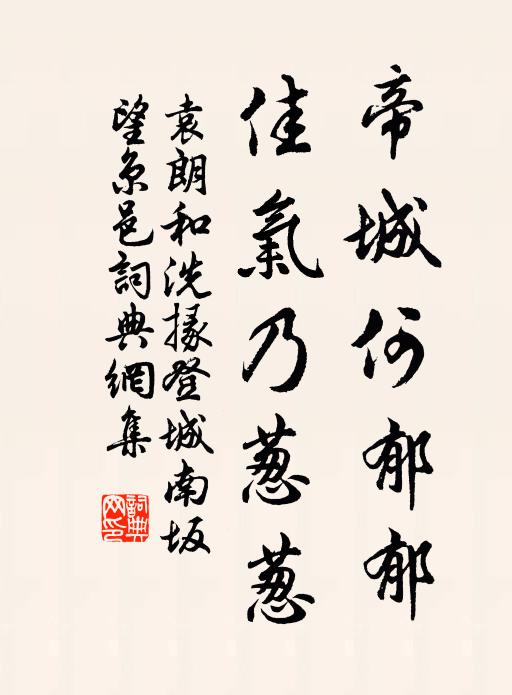 帝城何郁郁
佳氣乃葱葱
袁朗和洗掾登城南坂
望京邑詞典網集
詞典网印